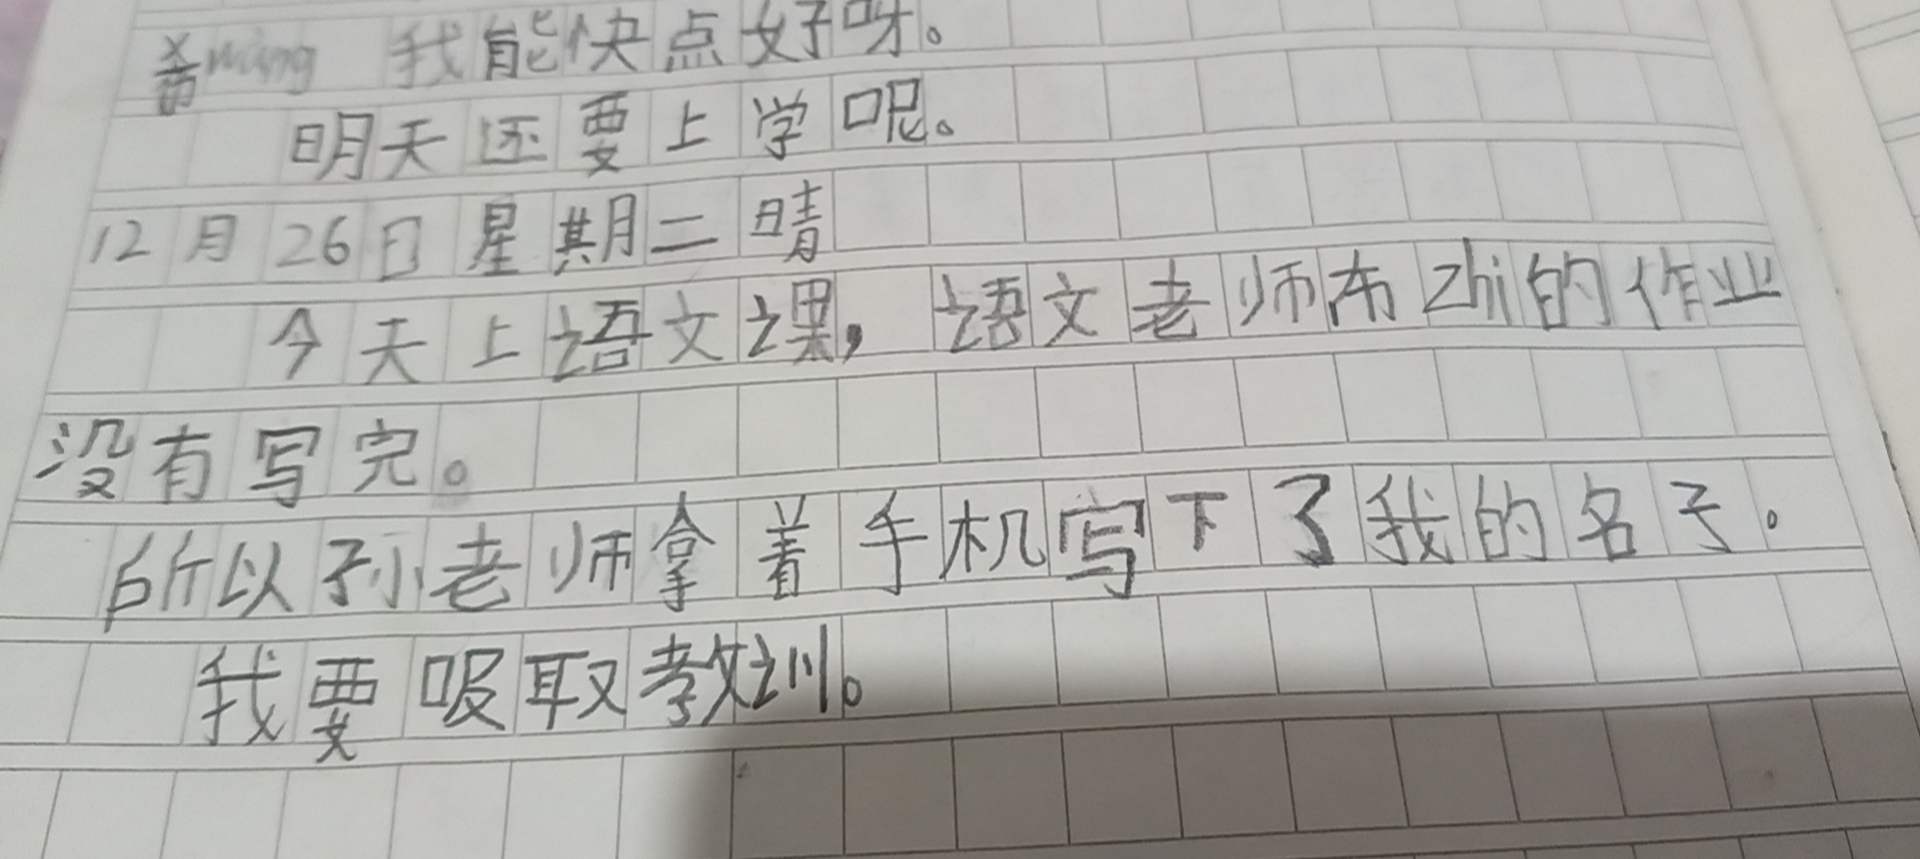 希wàng 我能快点好呀。
明天还要上学呢。
12月26日星期二晴
今天上语文课，语文老师布zhi的作业
没有写完。
所以孙老师拿着手机写下了我的名子。
我要吸取教训。